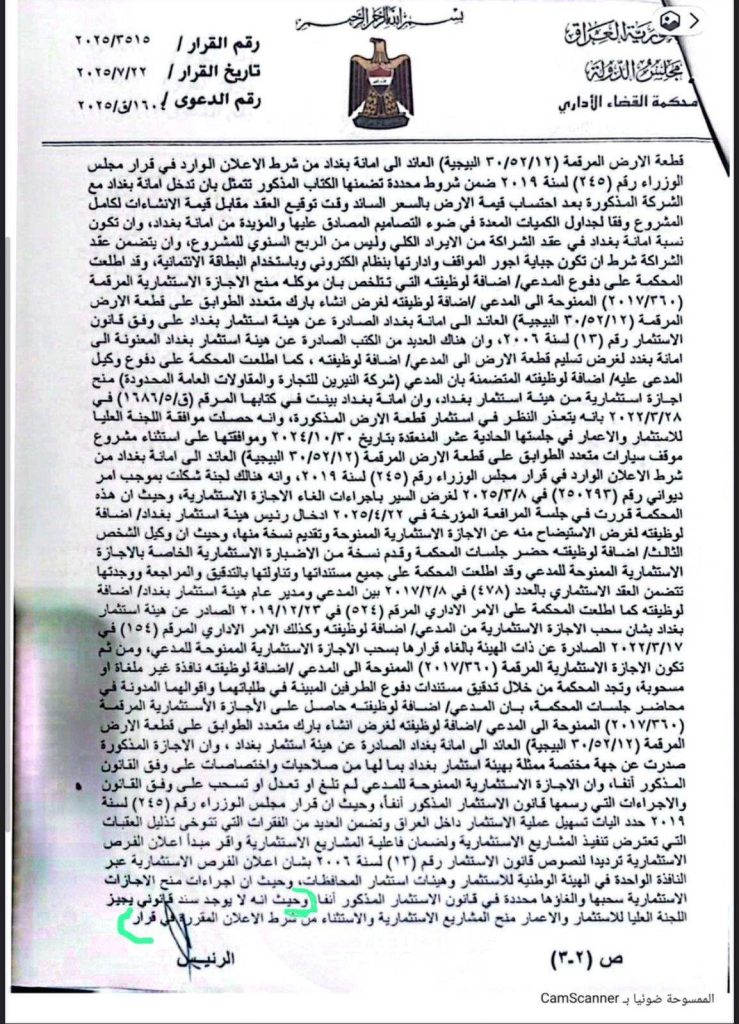 بسم الله الرحمن الرحيم
جمهورية العراق
مجلس الدولة
محكمة القضاء الأداري
رقم القرار / ٢٠٢٥/٣٥١٥
تاريخ القرار / ٢٠٢٥/٧/٢٢
رقم الدعوى / ١٦٠/ق/٢٠٢٥
قطعة الارض المرقمة (٣٠/٥٢/١٢ البيجية) العائد الى امانة بغداد من شرط الاعلان الوارد في قرار مجلس
الوزراء رقم (٢٤٥) لسنة ٢٠١٩ ضمن شروط محددة تضمنها الكتاب المذكور تتمثل بان تدخل امانة بغداد مع
الشركة المذكورة بعد احتساب قيمة الارض بالسعر السائد وقت توقيع العقد مقابل قيمة الانشاءات لكامل
المشروع وفقا لجداول الكميات المعدة في ضوء التصاميم المصادق عليها والمؤيدة من امانة بغداد، وان تكون
نسبة امانة بغداد في عقد الشراكة من الايراد الكلي وليس من الربح السنوي للمشروع، وان يتضمن عقد
الشراكة شرط ان تكون جباية اجور المواقف وادارتها بنظام الكتروني وباستخدام البطاقة الائتمانية، وقد اطلعت
المحكمة على دفوع المدعي/ اضافة لوظيفته التي تتلخص بان موكله منح الاجازة الاستثمارية المرقمة
(٢٠١٧/٣٦٠) الممنوحة الى المدعي /اضافة لوظيفته لغرض انشاء بارك متعدد الطوابق على قطعة الارض
المرقمة (٣٠/٥٢/١٢ البيجية) العائد الى امانة بغداد الصادرة عن هيئة استثمار بغداد على وفق قانون
الاستثمار رقم (١٣) لسنة ٢٠٠٦، وان هناك العديد من الكتب الصادرة عن هيئة استثمار بغداد المعنونة الى
امانة بغدد لغرض تسليم قطعة الارض الى المدعي/ اضافة لوظيفته ، كما اطلعت المحكمة على دفوع وكيل
المدعى عليه/ اضافة لوظيفته المتضمنة بان المدعي (شركة النيرين للتجارة والمقاولات العامة المحدودة) منح
اجازة استثمارية من هيئة استثمار بغداد، وان امانة بغداد بينت في كتابها المرقم (ق/١٦٨٦/٥) في
٢٠٢٢/٣/٢٨ بانه يتعذر النظر في استثمار قطعة الارض المذكورة، وانه حصلت موافقة اللجنة العليا
للاستثمار والاعمار في جلستها الحادية عشر المنعقدة بتاريخ ٢٠٢٤/١٠/٣٠ وموافقتها على استثناء مشروع
موقف سيارات متعدد الطوابق على قطعة الارض المرقمة (٣٠/٥٢/١٢ البيجية) العائد الى امانة بغداد من
شرط الاعلان الوارد في قرار مجلس الوزراء رقم (٢٤٥) لسنة ٢٠١٩، وانه هنالك لجنة شكلت بموجب امر
ديواني رقم (٢٥٠٢٩٣) في ٢٠٢٥/٣/٨ لغرض السير باجراءات الغاء الاجازة الاستثمارية، وحيث ان هذه
المحكمة قررت في جلسة المرافعة المؤرخة في ٢٠٢٥/٤/٢٢ ادخال رئيس هيئة استثمار بغداد/ اضافة
لوظيفته لغرض الاستيضاح منه عن الاجازة الاستثمارية الممنوحة وتقديم نسخة منها، وحيث ان وكيل الشخص
الثالث/ اضافة لوظيفته حضر جلسات المحكمة وقدم نسخة من الاضبارة الاستثمارية الخاصة بالاجازة
الاستثمارية الممنوحة للمدعي وقد اطلعت المحكمة على جميع مستنداتها وتناولتها بالتدقيق والمراجعة ووجدتها
تتضمن العقد الاستثماري بالعدد (٤٧٨) في ٢٠١٧/٢/٨ بين المدعي ومدير عام هيئة استثمار بغداد/ اضافة
لوظيفته كما اطلعت المحكمة على الامر الاداري المرقم (٥٢٤) في ٢٠١٩/١٢/٢٣ الصادر عن هيئة استثمار
بغداد بشان سحب الاجازة الاستثمارية من المدعي/ اضافة لوظيفته وكذلك الامر الاداري المرقم (١٥٤) في
٢٠٢٢/٣/١٧ الصادرة عن ذات الهيئة بالغاء قرارها بسحب الاجازة الاستثمارية الممنوحة للمدعي، ومن ثم
تكون الاجازة الاستثمارية المرقمة (٢٠١٧/٣٦٠) الممنوحة الى المدعي /اضافة لوظيفته نافذة غير ملغاة او
مسحوبة، وتجد المحكمة من خلال تدقيق مستندات دفوع الطرفين المبينة في طلباتهما واقوالهما المدونة في
محاضر جلسات المحكمة، بان المدعي/ اضافة لوظيفته حاصل على الأجازة الأستثمارية المرقمة
(٢٠١٧/٣٦٠) الممنوحة الى المدعي /اضافة لوظيفته لغرض انشاء بارك متعدد الطوابق على قطعة الارض
المرقمة (٣٠/٥٢/١٢ البيجية) العائد الى امانة بغداد الصادرة عن هيئة استثمار بغداد ، وان الاجازة المذكورة
صدرت عن جهة مختصة ممثلة بهيئة استثمار بغداد بما لها من صلاحيات واختصاصات على وفق القانون
المذكور أنفا، وان الاجازة الاستثمارية الممنوحة للمدعي لم تلغ او تعدل او تسحب على وفق القانون
والاجراءات التي رسمها قانون الاستثمار المذكور أنفاً، وحيث ان قرار مجلس الوزراء رقم (٢٤٥) لسنة
٢٠١٩ حدد اليات تسهيل عملية الاستثمار داخل العراق وتضمن العديد من الفقرات التي تتوخى تذليل العقبات
التي تعترض تنفيذ المشاريع الاستثمارية ولضمان فاعلية المشاريع الاستثمارية واقر مبدأ اعلان الفرص
الاستثمارية ترديدا لنصوص قانون الاستثمار رقم (١٣) لسنة ٢٠٠٦ بشان اعلان الفرص الاستثمارية عبر
النافذة الواحدة في الهيئة الوطنية للاستثمار وهيئات استثمار المحافظات، وحيث ان اجراءات منح الاجازات
الاستثمارية سحبها والغاؤها محددة في قانون الاستثمار المذكور أنفا، وحيث انه لا يوجد سند قانوني يجيز
اللجنة العليا للاستثمار والاعمار منح المشاريع الاستثمارية والاستثناء من شرط الاعلان المقررة في قرار
الرئيس
ص (٢-٣)
الممسوحة ضوئيا بـ CamScanner